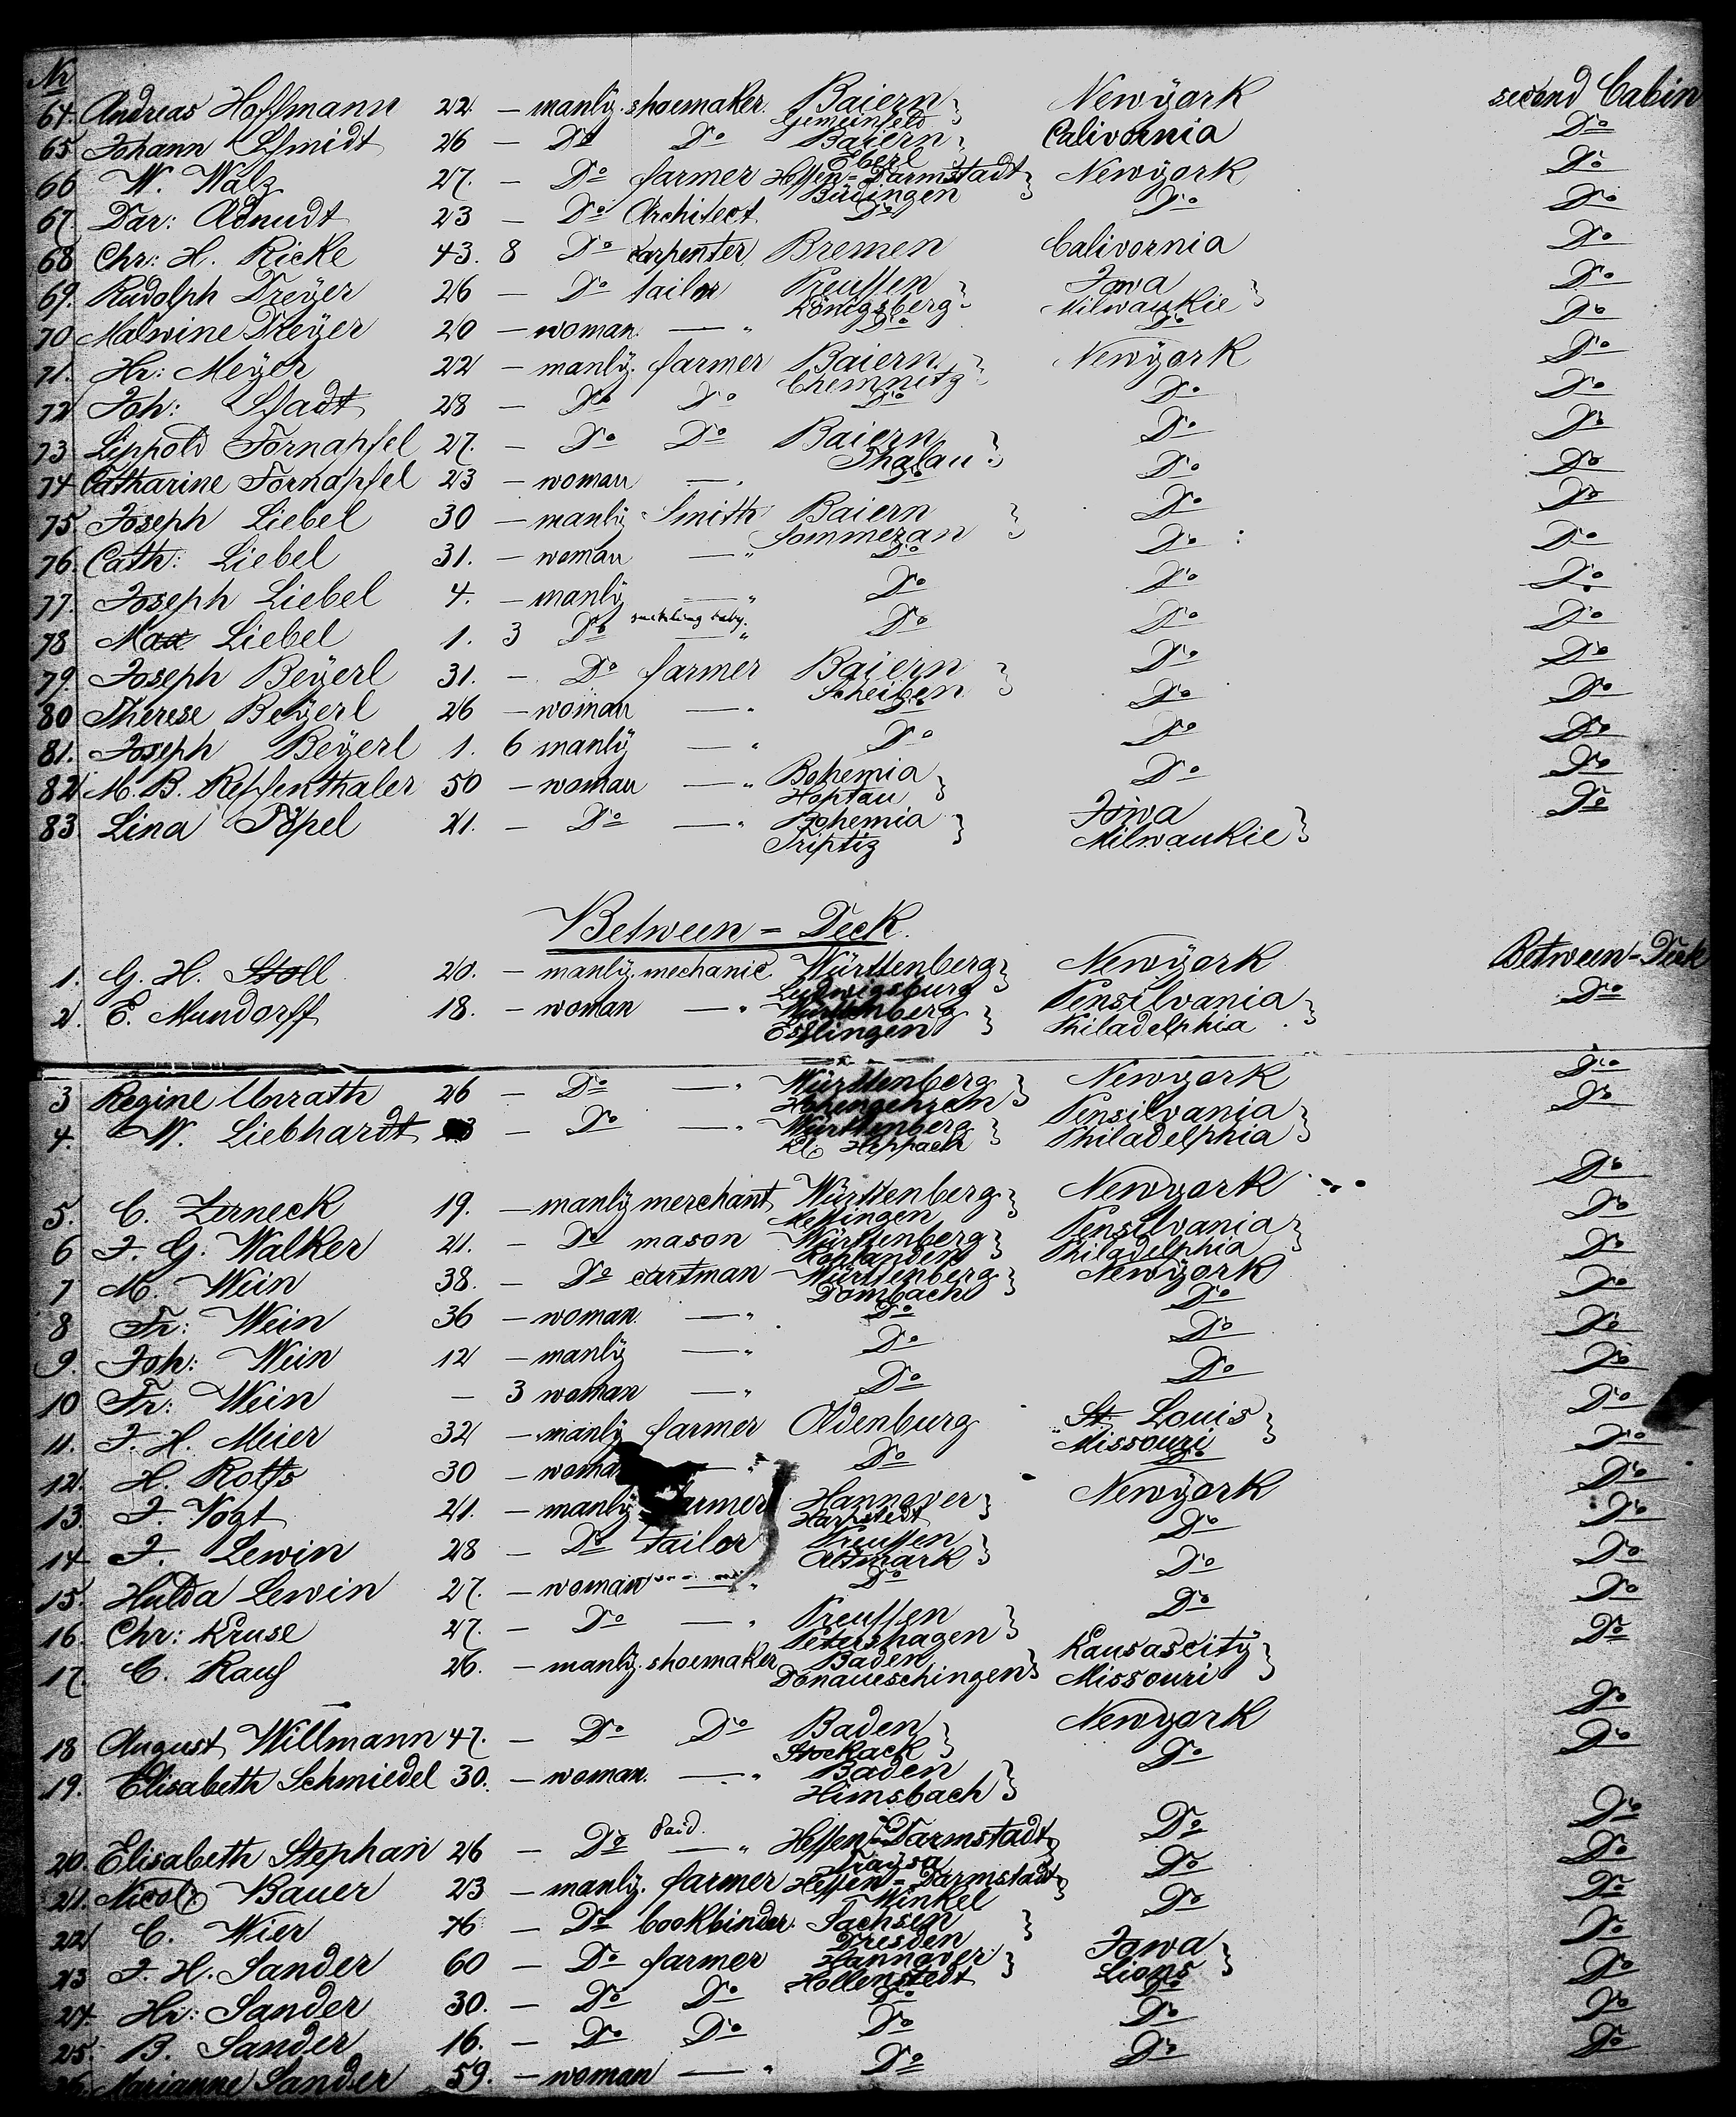 Nr
64 Andreas Hoffmann 22 — manly. shoemaker. Baiern Gemeinfeld } Newÿork second Cabin
65 Johann Schmidt 26 — Do Do Baiern Eberl } Calivornia Do
66 W. Walz 27. — Do farmer Hessen=Darmstadt Büdingen } Newÿork Do
67. Dar: 23 — Do Architect Do Do Do
68 Chr: H. Ricke 43. 8 Do carpenter Bremen Calivornia Do
69. Rudolph Dreÿer 26 — Do tailor Preussen Königsberg } Iowa Milwaukie } Do
70 Malwine Dreÿer 20 — woman. — " Do Do Do
71. Hr: Meÿer 22 — manlÿ. farmer Baiern Chemnitz } Newÿork Do
72 Joh: 28 — Do Do Do Do Do
73 Lippold Fornapfel 27. — Do Do Baiern Thalau } Do Do
74 Catharine Fornapfel 23 — woman — " Do Do Do
75. Joseph Liebel 30 — manly Smith Baiern Sommerzan } Do Do
76. Cath: Liebel 31. — woman — " Do Do : Do
77. Joseph Liebel 4. — manlÿ — " Do Do Do
78 Liebel 1. 3 Do suckling baby. — " Do Do Do
79. Joseph Beÿerl 31. — Do farmer Baiern Scheiben } Do Do
80 Therese Beÿerl 26 — woman — " Do Do Do
81. Joseph Beÿerl 1. 6 manlÿ — " Do Do Do
82 M. B. Reffenthaler 50 — woman — " Bohemia Hoptau } Do Do
83 Lina Pöpel 21. — Do — " Bohemia Triptiz } Iowa Milwaukie } Do
Between = Deck.
1. G. H. Stoll 20. — manly. mechanic Württenberg Ludwigsburg } Newÿork Between=Deck
2. E. Mundorff 18. — woman — " Württenberg Esslingen } Pensilvania Philadelphia } Do
3 Regine Unrath 26 — Do — " Württenberg } Newyork Do
4. W. Liebhardt — Do — " Württenberg Kl. Heppach } Pensilvania Philadelphia } Do
5. C. Zerneck 19. — manlÿ merchant Württenberg Messingen } Newyork Do
6 J. G. Walker 21. — Do mason Württenberg } Pensilvania Philadelphia } Do
7 M. Wein 38. — Do cartman Württenberg Dombach } Newÿork Do
8 Fr: Wein 36 — woman. — " Do Do Do
9. Joh: Wein 12 — manlÿ — " Do Do Do
10 Fr: Wein — 3 woman — " Do Do Do
11. J. H. Meier 32 — manlÿ farmer Oldenburg St. Louis Missouri } Do
12. H. Rotfs 30 — woman — " Do Do Do
13. J. Vogt 21. — manlÿ farmer Hannover Harpstedt } Newÿork Do
14 J. Lewin 28 — Do tailor Preussen Altmark } Do Do
15. Hulda Lewin 27. — woman — " Do Do Do
16. Chr: Kruse 27. — Do — " Preussen Petershagen } Do Do
17. C. Rauf 26. — manlÿ. shoemaker Baden Donaueschingen } Kansascitÿ Missouri } Do
18 August Willmann 47. — Do Do Baden Stockack } Newyork Do
19. Elisabeth Schmiedel 30. — woman. — " Baden Himsbach } Do Do
20. Elisabeth Stephan 26 — Do Paid. — " Hessen=Darmstadt Traysa } Do Do
21. Nicol. Bauer 23 — manlÿ. farmer Hessen=Darmstadt Winkel } Do Do
22 C. Wier 46 — Do bookbinder. Sachsen Dresden } Do Do
23 J. H. Sander 60 — Do farmer Hannover Hollenstedt } Iowa Lions } Do
24. Hr: Sander 30. — Do Do Do Do Do
25. B. Sander 16. — Do Do Do Do Do
26. Marianne Sander 59. — woman — " Do Do Do